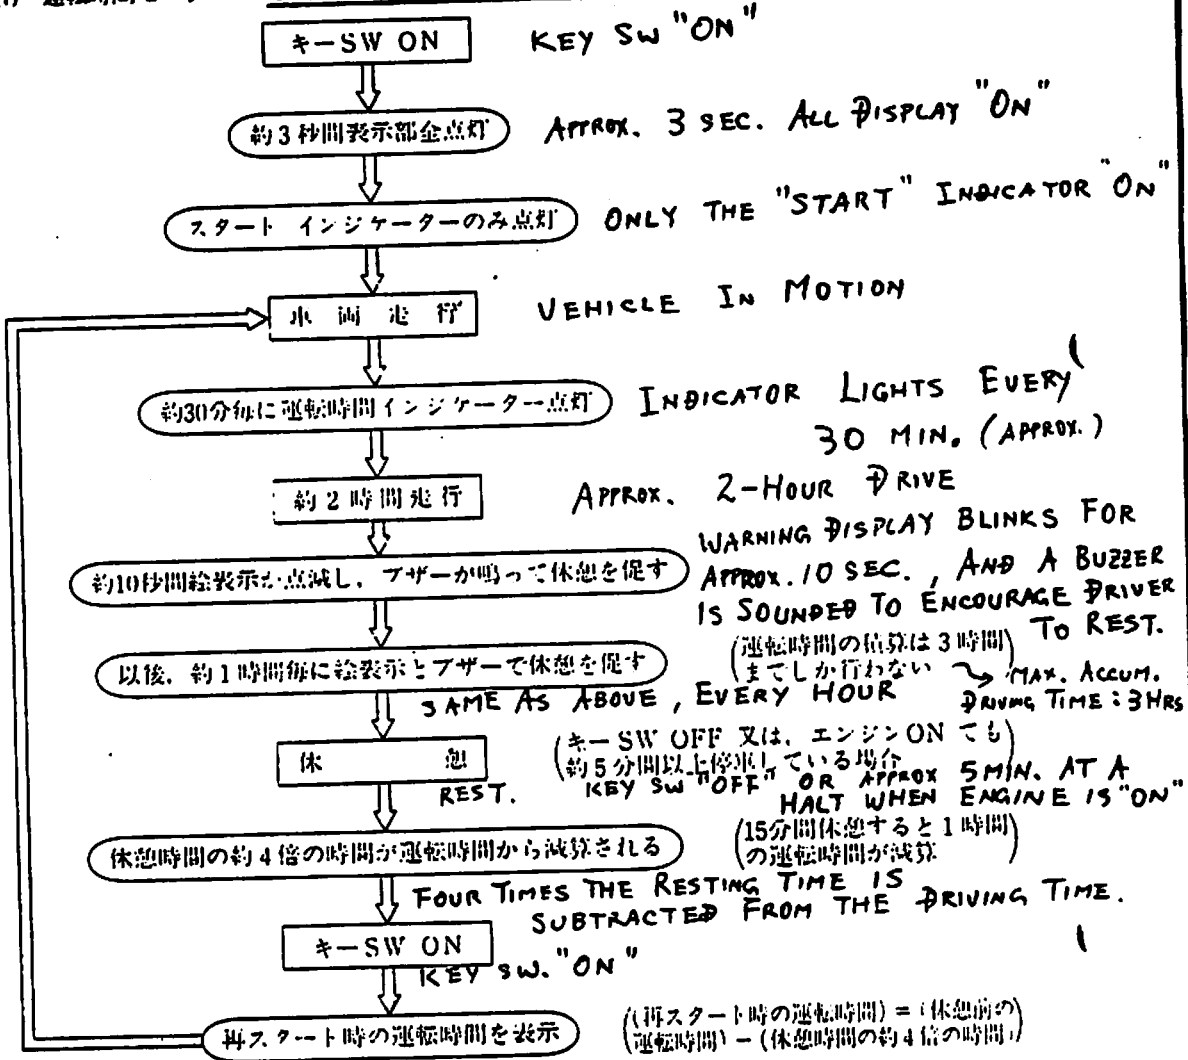 運転時間
キーSW ON
KEY SW "ON"
約3秒間表示部全点灯
APPROX. 3 SEC. ALL DISPLAY "ON"
スタート インジケーターのみ点灯
ONLY THE "START" INDICATOR "ON"
車両走行
VEHICLE IN MOTION
約30分毎に運転時間インジケーター点灯
INDICATOR LIGHTS EVERY
30 MIN. (APPROX.)
約2時間走行
APPROX. 2-HOUR DRIVE
WARNING DISPLAY BLINKS FOR
約10秒間絵表示が点滅し、ブザーが鳴って休憩を促す
APPROX. 10 SEC., AND A BUZZER
IS SOUNDED TO ENCOURAGE DRIVER
TO REST.
以後、約1時間毎に絵表示とブザーで休憩を促す
(運転時間の積算は3時間
までしか行わない)
SAME AS ABOVE, EVERY HOUR
MAX. ACCUM.
DRIVING TIME: 3 HRS
休憩
REST.
(キーSW OFF 又は、エンジンONでも
約5分間以上停車している場合)
KEY SW "OFF" OR APPROX 5 MIN. AT A
HALT WHEN ENGINE IS "ON"
休憩時間の約4倍の時間が運転時間から減算される
(15分間休憩すると1時間
の運転時間が減算)
FOUR TIMES THE RESTING TIME IS
SUBTRACTED FROM THE DRIVING TIME.
キーSW ON
KEY SW. "ON"
再スタート時の運転時間を表示
((再スタート時の運転時間)=(休憩前の
運転時間)-(休憩時間の約4倍の時間))